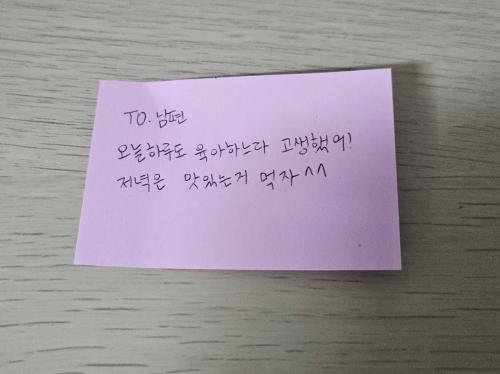 TO. 남편
오늘하루도 육아하느라 고생했어!
저녁은 맛있는거 먹자^^